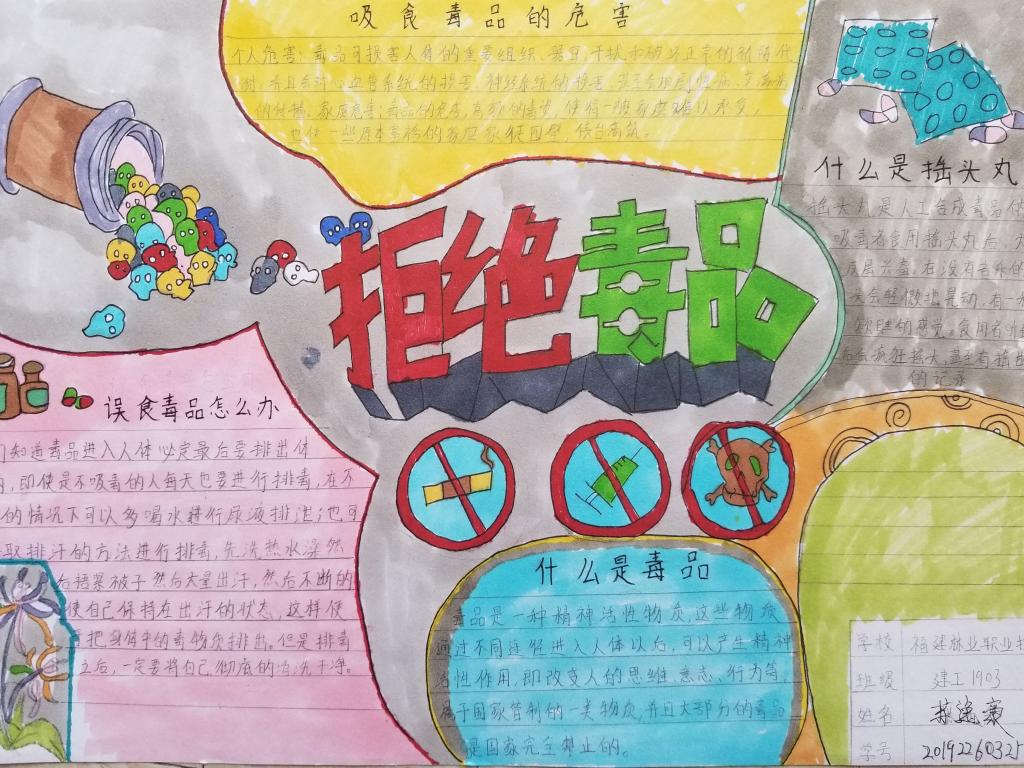 吸食毒品的危害
个人危害:毒品可损害人体的重要组织、器官,干扰和破坏正常的新陈代
谢,并且会对心血管系统的损害,神经系统的损害,
的代替,家庭危害:毒品的危害,高额的毒资,使得一般家庭难以承受,
也使一些原本富裕的家庭家徒四壁,债台高筑。
什么是摇头丸
摇头丸是人工合成毒品
吸毒者食用摇头丸后,
在没有音乐的
会轻微地晃动,有一
的感觉,食用者
后会疯狂摇头,甚至有摇
的记录
拒绝毒品
误食毒品怎么办
们知道毒品进入人体必定最后要排出体
,即使是不吸毒的人每天也要进行排毒,在不
的情况下可以多喝水进行尿液排泄;也可
取排汗的方法进行排毒,先洗热水澡然
后捂紧被子然后大量出汗,然后不断的
使自己保持在出汗的状态,这样便
把身体中的毒物质排出。但是排毒
之后,一定要将自己彻底的清洗干净。
什么是毒品
毒品是一种精神活性物质,这些物质
通过不同途径进入人体以后,可以产生精神
活性作用,即改变人的思维、意志、行为等,
属于国家管制的一类物质,并且大部分的毒品
是国家完全禁止的。
学校 福建林业职业技
班级 建工1903
姓名
学号 20192260325